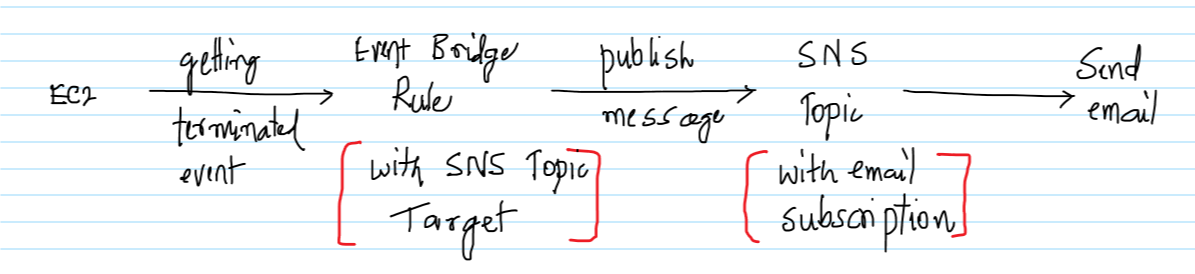 EC2
getting
terminated
event
Event Bridge
Rule
[with SNS Topic
Target]
publish
message
SNS
Topic
[with email
subscription]
Send
email